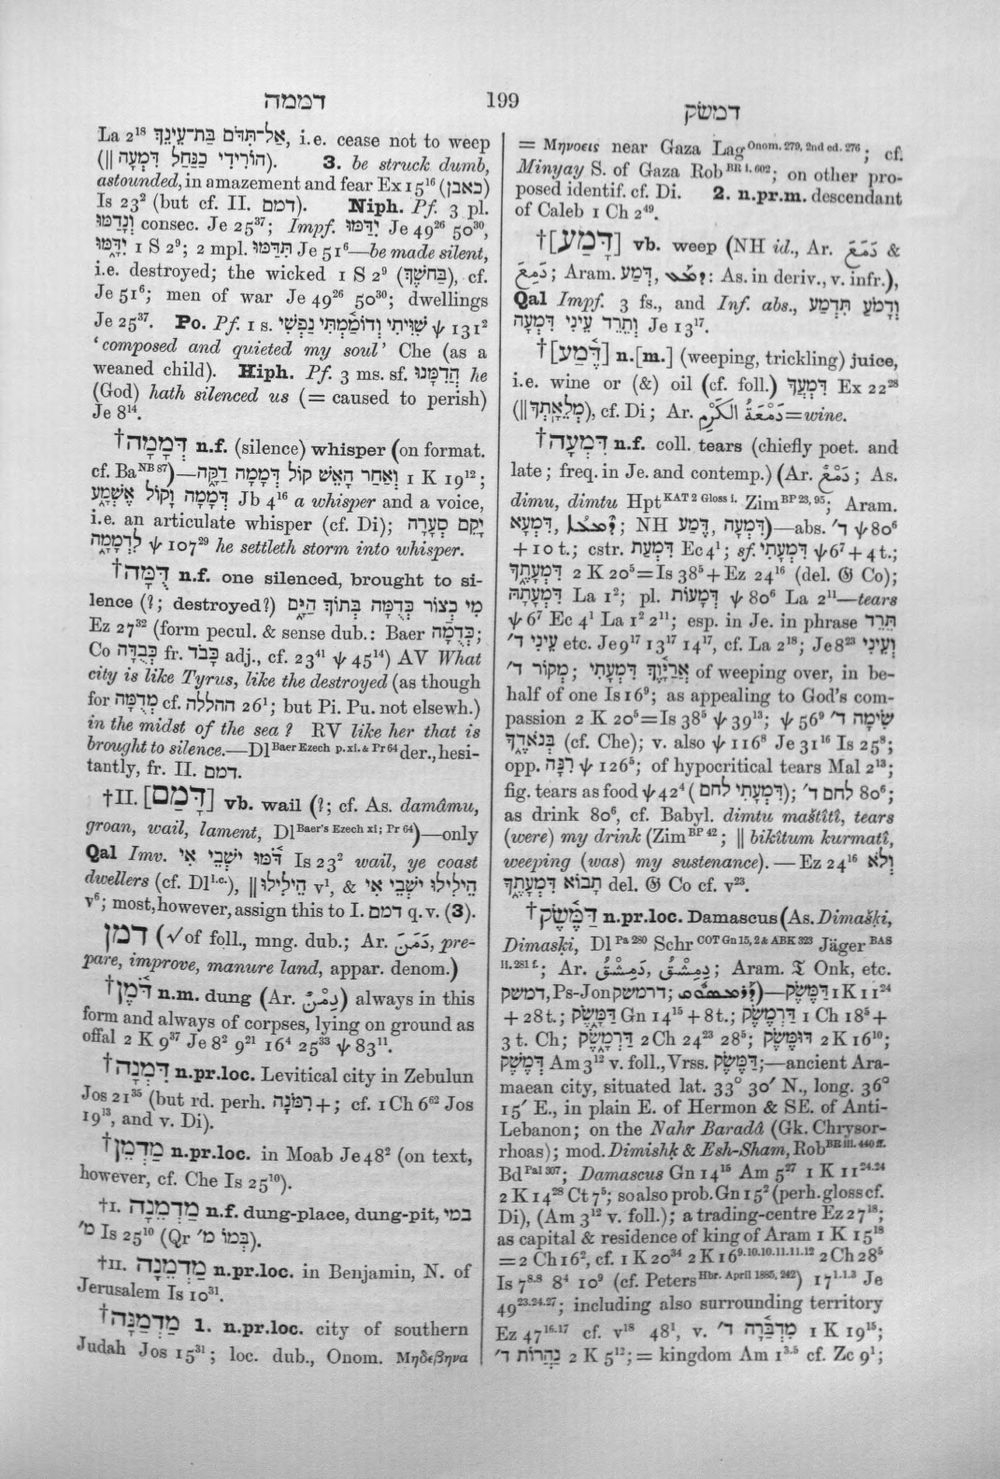 דממה
199
דמשק
La 2¹⁸ אַל־תִּדֹּם בַּת־עֵינֵךְ, i.e. cease not to weep
(‖ הוֹרִידִי כַנַּחַל דִּמְעָה). 3. be struck dumb,
astounded, in amazement and fear Ex 15¹⁶ (כאבן)
Is 23² (but cf. II. דמם). Niph. Pf. 3 pl.
וְנָדַמּוּ consec. Je 25³⁷; Impf. יִדַּמּוּ Je 49²⁶ 50³⁰,
יִדָּמּוּ 1 S 2⁹; 2 mpl. תִּדַּמּוּ Je 51⁶—be made silent,
i.e. destroyed; the wicked 1 S 2⁹ (בַּחשֶׁךְ), cf.
Je 51⁶; men of war Je 49²⁶ 50³⁰; dwellings
Je 25³⁷. Po. Pf. 1 s. שִׁוִּיתִי וְדוֹמַמְתִּי נַפְשִׁי ψ 131²
‘composed and quieted my soul’ Che (as a
weaned child). Hiph. Pf. 3 ms. sf. הֲדִמָּנוּ he
(God) hath silenced us (= caused to perish)
Je 8¹⁴.
†דְּמָמָה n.f. (silence) whisper (on format.
cf. Ba ᴺᴮ ⁸⁷)—וְאַחַר הָאֵשׁ קוֹל דְּמָמָה דַקָּה 1 K 19¹²;
דְּמָמָה וָקוֹל אֶשְׁמָע Jb 4¹⁶ a whisper and a voice,
i.e. an articulate whisper (cf. Di); יָקֵם סְעָרָה
לִדְמָמָה ψ 107²⁹ he settleth storm into whisper.
†דֻּמָה n.f. one silenced, brought to si-
lence (?; destroyed?) מִי כְצוֹר כְּדֻמָה בְּתוֹךְ הַיָּם
Ez 27³² (form pecul. & sense dub.: Baer כְּדֻמָה;
Co כְּבֻדָּה fr. כבד adj., cf. 23⁴¹ ψ 45¹⁴) AV What
city is like Tyrus, like the destroyed (as though
for מְדֻמָּה cf. ההללה 26¹; but Pi. Pu. not elsewh.)
in the midst of the sea? RV like her that is
brought to silence.—Dl Baer Ezech p.xi. & Pr 64 der., hesi-
tantly, fr. II. דמם.
†II. [דָּמַם] vb. wail (?; cf. As. damâmu,
groan, wail, lament, Dl Baer's Ezech xi; Pr 64)—only
Qal Imv. דֹּמּוּ יֹשְׁבֵי אִי Is 23² wail, ye coast
dwellers (cf. Dl l.c.), ‖ הֵילִילוּ v¹, & הֵילִילוּ יֹשְׁבֵי אִי
v⁶; most, however, assign this to I. דמם q.v. (3).
דמן (√ of foll., mng. dub.; Ar. دَمَنَ, pre-
pare, improve, manure land, appar. denom.)
†דֹּמֶן n.m. dung (Ar. دِمْنٌ) always in this
form and always of corpses, lying on ground as
offal 2 K 9³⁷ Je 8² 9²¹ 16⁴ 25³³ ψ 83¹¹.
†דִּמְנָה n.pr.loc. Levitical city in Zebulun
Jos 21³⁵ (but rd. perh. רִמֹּנָה +; cf. 1 Ch 6⁶² Jos
19¹³, and v. Di).
†מַדְמֵן n.pr.loc. in Moab Je 48² (on text,
however, cf. Che Is 25¹⁰).
†I. מַדְמֵנָה n.f. dung-place, dung-pit, במי
מ׳ Is 25¹⁰ (Qr בְּמוֹ מ׳).
†II. מַדְמֵנָה n.pr.loc. in Benjamin, N. of
Jerusalem Is 10³¹.
†מַדְמַנָּה 1. n.pr.loc. city of southern
Judah Jos 15³¹; loc. dub., Onom. Μηδεβηνα
= Μηνοεις near Gaza Lag Onom. 279, 2nd ed. 276; cf.
Minyay S. of Gaza Rob BR i. 602; on other pro-
posed identif. cf. Di. 2. n.pr.m. descendant
of Caleb 1 Ch 2⁴⁹.
†[דָּמַע] vb. weep (NH id., Ar. دَمَعَ &
دَمِعَ; Aram. דְּמַע, ܕܡܥ: As. in deriv., v. infr.),
Qal Impf. 3 fs., and Inf. abs., וְדָמֹעַ תִּדְמַע
וְתֵרַד עֵינִי דִּמְעָה Je 13¹⁷.
†[דֶּמַע] n.[m.] (weeping, trickling) juice,
i.e. wine or (&) oil (cf. foll.) דִּמְעֲךָ Ex 22²⁸
(‖ מְלֵאָתְךָ), cf. Di; Ar. دَمْعَةُ الكَرْمِ = wine.
†דִּמְעָה n.f. coll. tears (chiefly poet. and
late; freq. in Je. and contemp.) (Ar. دَمْعٌ; As.
dimu, dimtu Hpt KAT 2 Gloss i. Zim BP 23, 95; Aram.
דִּמְעָא, ܕܡܥܬܐ; NH דִּמְעָה, דֶּמַע)—abs. ד׳ ψ 80⁶
+ 10 t.; cstr. דִּמְעַת Ec 4¹; sf. דִּמְעָתִי ψ 6⁷ + 4 t.;
דִּמְעָתֶךָ 2 K 20⁵ = Is 38⁵ + Ez 24¹⁶ (del. 𝔊 Co);
דִּמְעָתָהּ La 1²; pl. דְּמָעוֹת ψ 80⁶ La 2¹¹—tears
ψ 6⁷ Ec 4¹ La 1² 2¹¹; esp. in Je. in phrase תֵּרַד
עֵינִי ד׳ etc. Je 9¹⁷ 13¹⁷ 14¹⁷, cf. La 2¹⁸; Je 8²³ וְעֵינִי
מְקוֹר ד׳; אֲרַיָּוֶךְ דִּמְעָתִי of weeping over, in be-
half of one Is 16⁹; as appealing to God's com-
passion 2 K 20⁵ = Is 38⁵ ψ 39¹³; ψ 56⁹ שִׂימָה ד׳
בְּנֹאדֶךָ (cf. Che); v. also ψ 116⁸ Je 31¹⁶ Is 25⁸;
opp. רִנָּה ψ 126⁵; of hypocritical tears Mal 2¹³;
fig. tears as food ψ 42⁴ (דִּמְעָתִי לחם); לחם ד׳ 80⁶;
as drink 80⁶, cf. Babyl. dimtu maštîtî, tears
(were) my drink (Zim BP 42; ‖ bikîtum kurmatî,
weeping (was) my sustenance).—Ez 24¹⁶ וְלֹא
תָבוֹא דִּמְעָתֶךָ del. 𝔊 Co cf. v²³.
†דַּמֶּשֶׂק n.pr.loc. Damascus (As. Dimašḳi,
Dimaski, Dl Pa 280 Schr COT Gn 15, 2 & ABK 323 Jäger BAS
ii. 281 f.; Ar. دِمِشْقُ, دِمَشْقُ; Aram. 𝔗 Onk, etc.
דמשק, Ps-Jon דרמשק; ܕܪܡܣܘܩ)—דַּמֶּשֶׂק 1 K 11²⁴
+ 28 t.; דַּמָּשֶׂק Gn 14¹⁵ + 8 t.; דַּרְמֶשֶׂק 1 Ch 18⁵ +
3 t. Ch; דַּרְמָשֶׂק 2 Ch 24²³ 28⁵; דּוּמֶּשֶׂק 2 K 16¹⁰;
דְּמֶשֶׁק Am 3¹² v. foll., Vrss. דַּמֶּשֶׂק;—ancient Ara-
maean city, situated lat. 33° 30′ N., long. 36°
15′ E., in plain E. of Hermon & SE. of Anti-
Lebanon; on the Nahr Baradâ (Gk. Chrysor-
rhoas); mod. Dimishḳ & Esh-Sham, Rob BR iii. 440 ff.
Bd Pal 307; Damascus Gn 14¹⁵ Am 5²⁷ 1 K 11²⁴·²⁴
2 K 14²⁸ Ct 7⁵; so also prob. Gn 15² (perh. gloss cf.
Di), (Am 3¹² v. foll.); a trading-centre Ez 27¹⁸;
as capital & residence of king of Aram 1 K 15¹⁸
= 2 Ch 16², cf. 1 K 20³⁴ 2 K 16⁹·¹⁰·¹⁰·¹¹·¹¹·¹² 2 Ch 28⁵
Is 7⁸·⁸ 8⁴ 10⁹ (cf. Peters Hbr. April 1885, 242) 17¹·¹·³ Je
49²³·²⁴·²⁷; including also surrounding territory
Ez 47¹⁶·¹⁷ cf. v¹⁸ 48¹, v. מִדְבַּרָה ד׳ 1 K 19¹⁵;
נַהֲרוֹת ד׳ 2 K 5¹²; = kingdom Am 1³·⁵ cf. Zc 9¹;